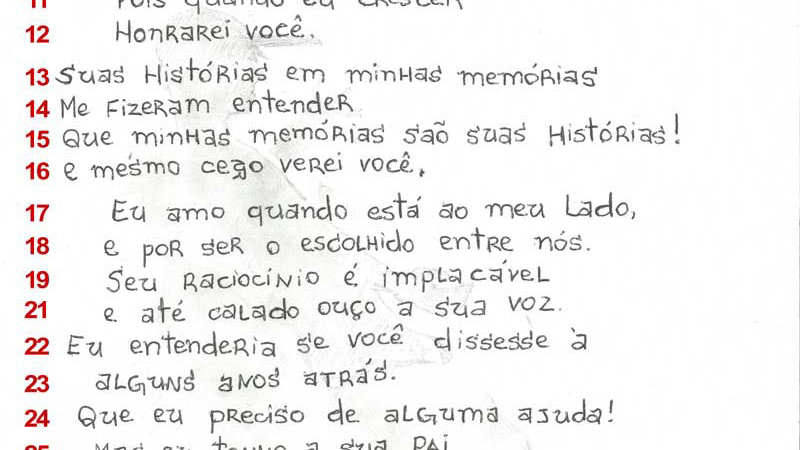 11 Pois quando eu crescer
12 Honrarei você.
13 Suas Histórias em minhas memórias
14 Me Fizeram entender
15 Que minhas memórias saõ suas Histórias!
16 e mesmo cego verei você.
17 Eu amo quando está ao meu Lado,
18 e por ser o escolhido entre nós.
19 Seu Raciocínio é implacável
21 e até calado ouço a sua voz.
22 Eu entenderia se você dissesse à
23 alguns anos atrás.
24 Que eu preciso de alguma ajuda!
25 a sua pai